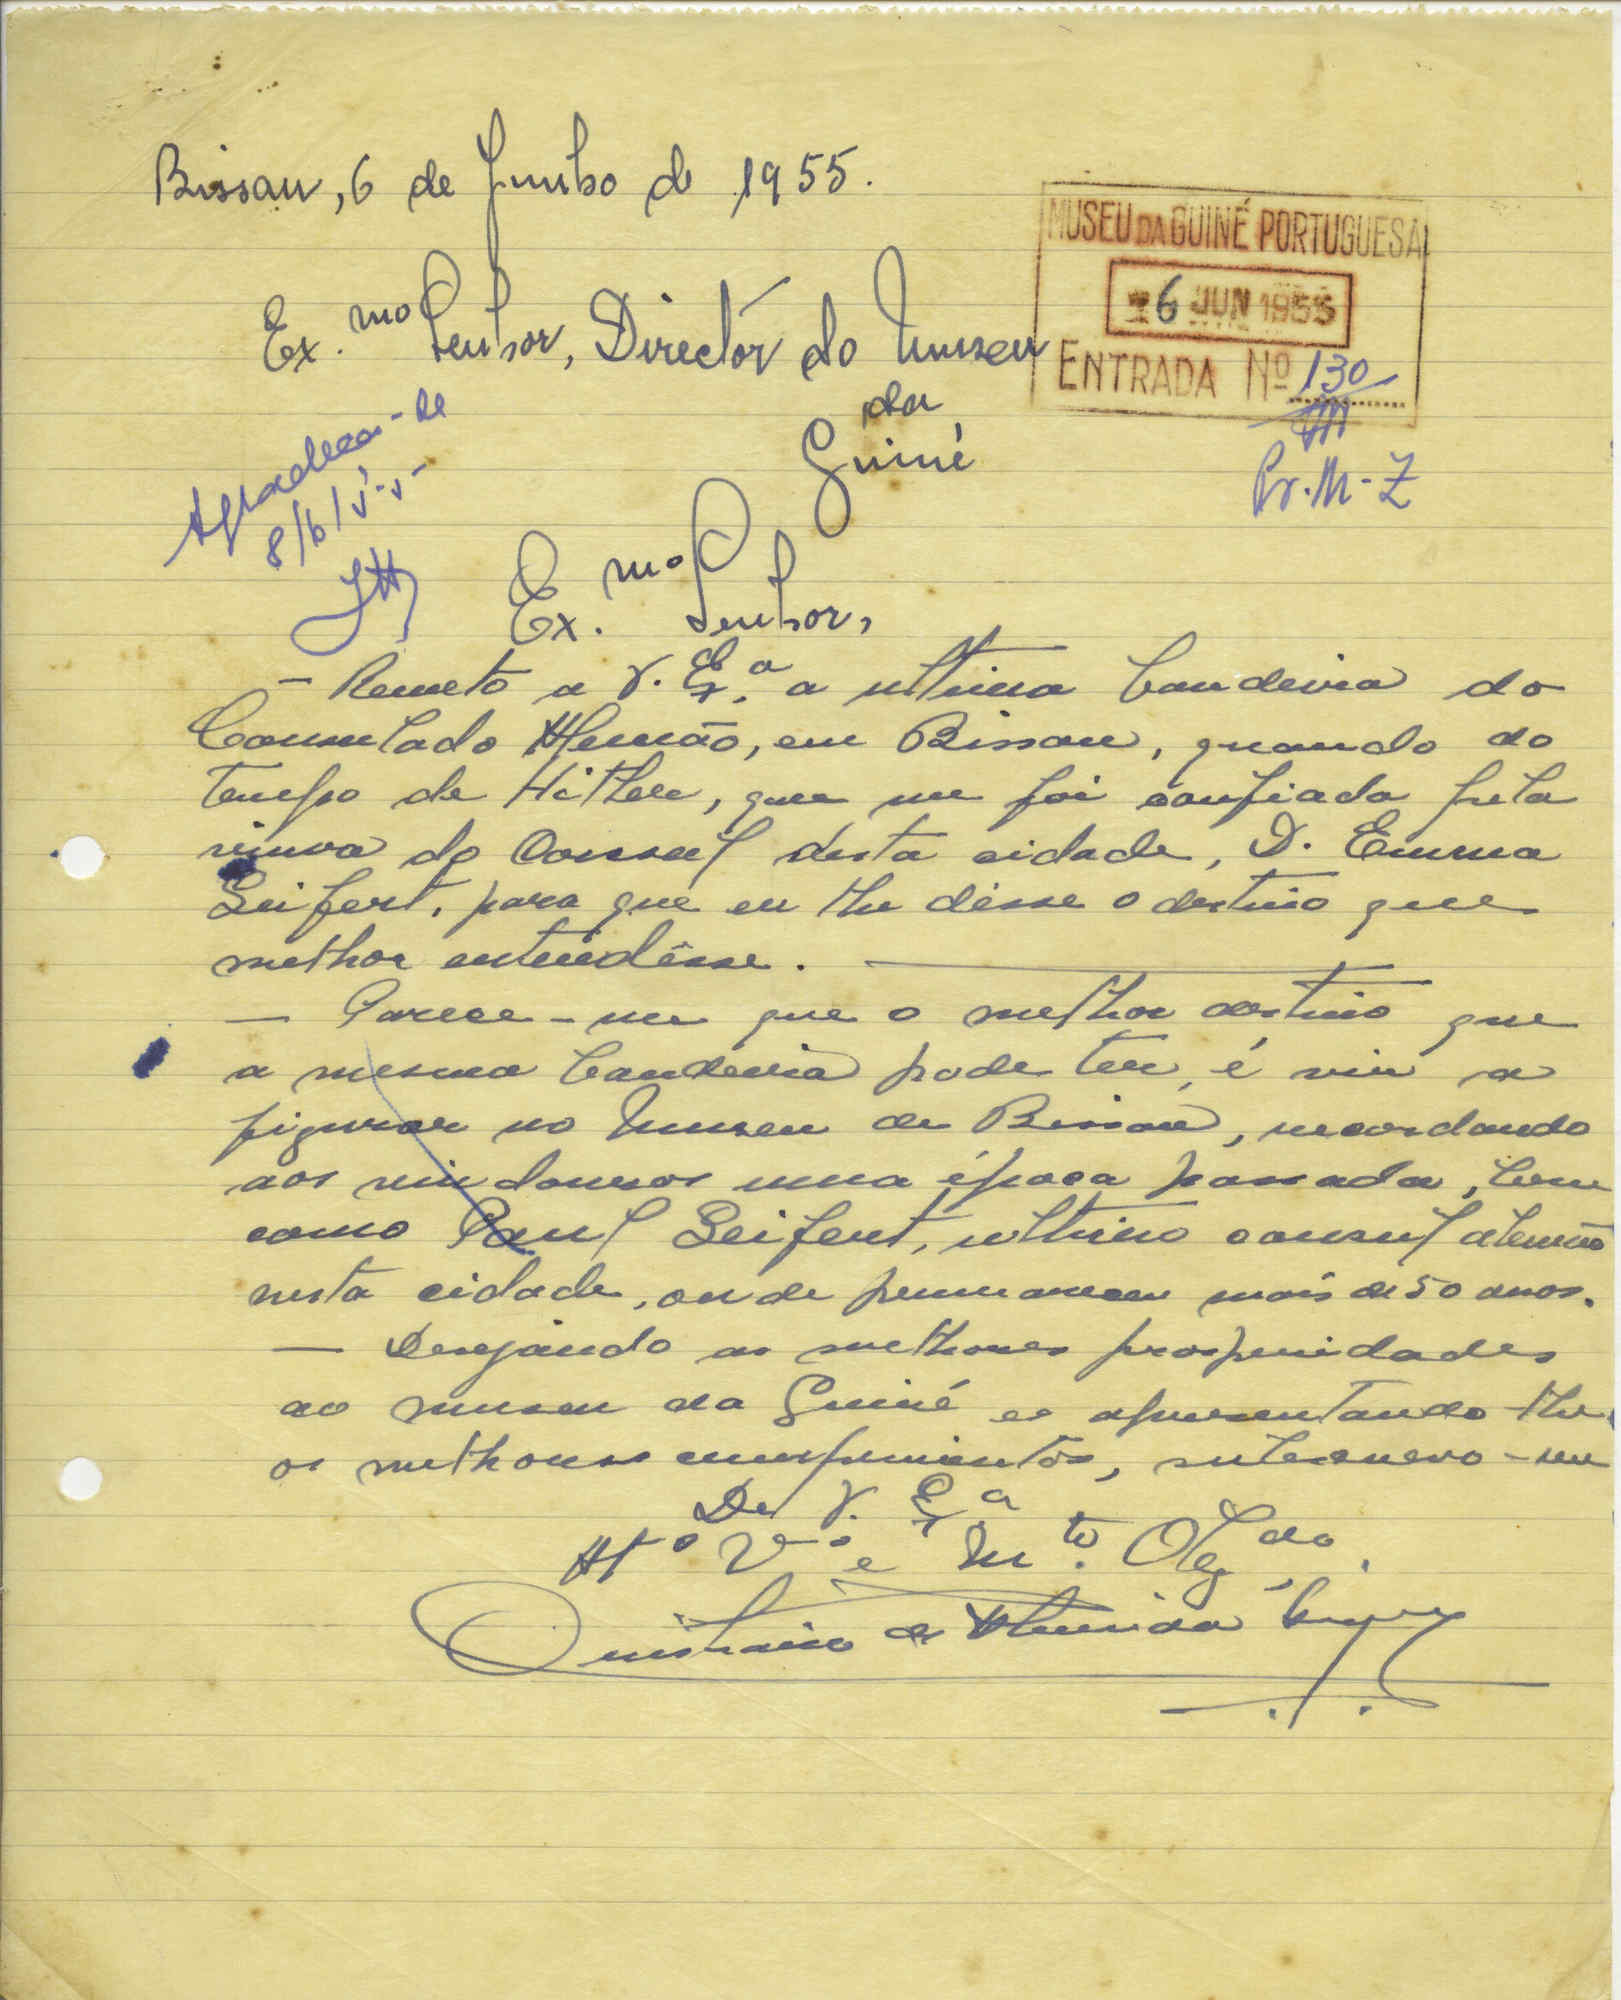 Bissau, 6 de Junho de 1955.
MUSEU DA GUINÉ PORTUGUESA
6 JUN 1955
ENTRADA Nº 130
Pr. M-Z
Ex.mo Senhor, Directór do Museu
da
Guiné
Agradecer-se
8/6/55
Ex.mo Senhor,
- Remeto a V. Ex.a a ultima bandeira do
Consulado Alemão, em Bissau, quando do
tempo de Hitler, que me foi confiada pela
viuva do Consul desta cidade, D. Emma
Seifert, para que eu lhe désse o destino que
melhor entendêsse.
- Parece-me que o melhor destino que
a mesma bandeira pode ter, é vir a
figurar no Museu de Bissau, recordando
aos vindouros uma época passada, bem
como Paul Seifert, ultimo consul alemão
nesta cidade, onde permaneceu mais de 50 anos.
- Desejando as melhores prosperidades
ao museu da Guiné e apresentando-lhe
os melhores cumprimentos, subscrevo-me
De V. Ex.a
At.o V.or e M.to Obg.do,
de Almeida